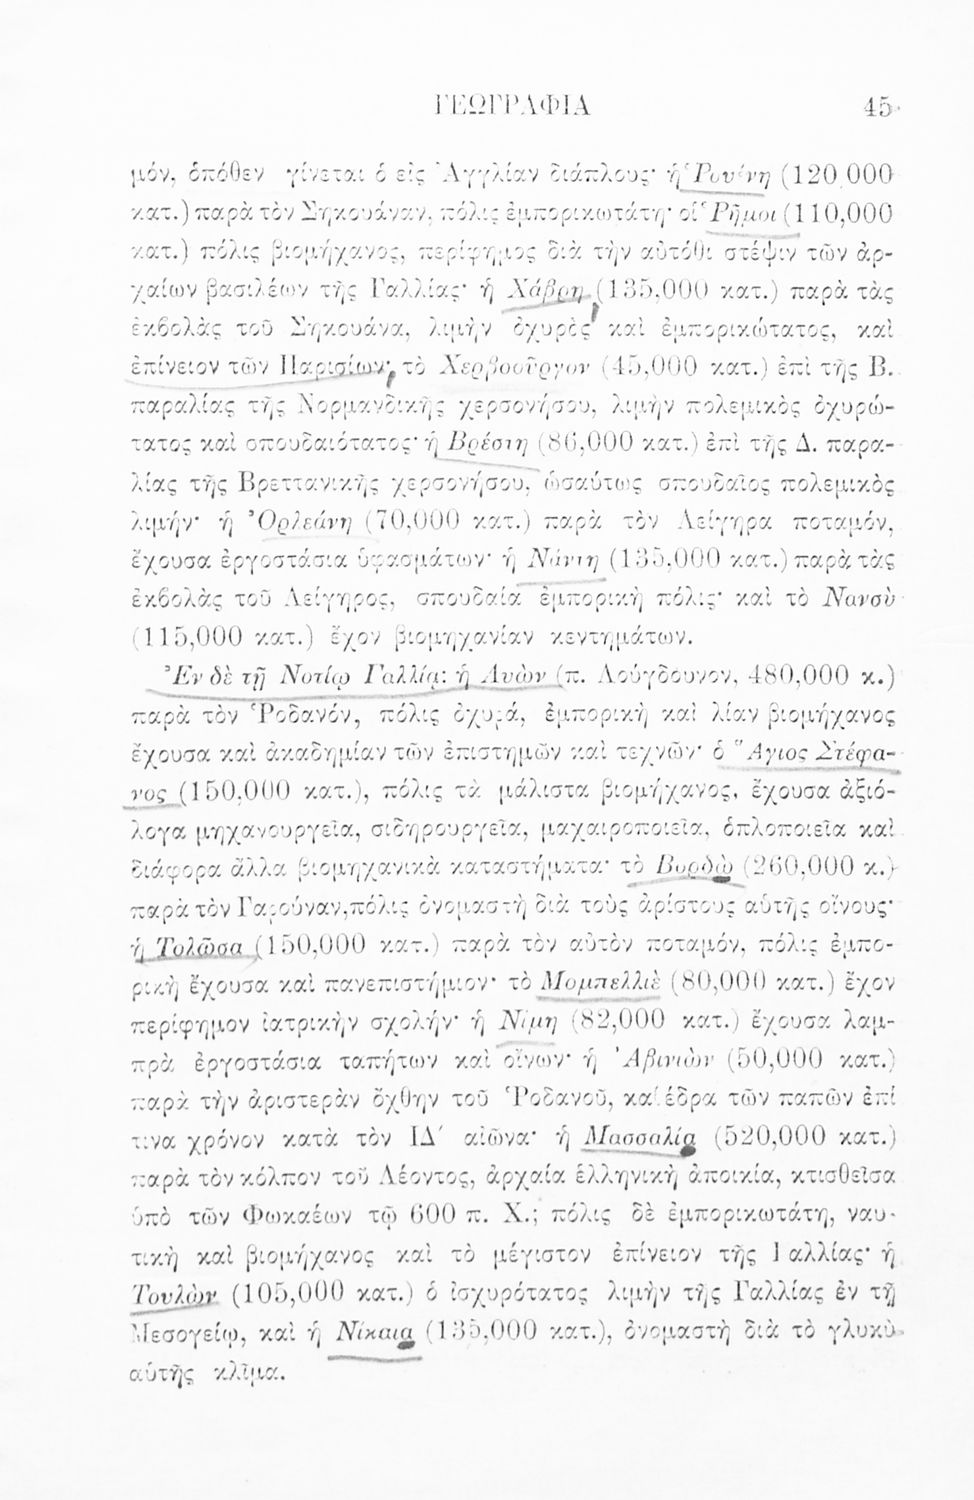 ΓΕΩΓΡΑΦΙΑ 45
μόν, ὁπόθεν γίνεται ὁ εἰς Ἀγγλίαν διάπλους· ἡ Ῥουένη (120,000
κατ.) παρὰ τὸν Σηκουάναν, πόλις ἐμπορικωτάτη· οἱ Ῥῆμοι (110,000
κατ.) πόλις βιομήχανος, περίφημος διὰ τὴν αὐτόθι στέψιν τῶν ἀρ-
χαίων βασιλέων τῆς Γαλλίας· ἡ Χάβρη (135,000 κατ.) παρὰ τὰς
ἐκβολὰς τοῦ Σηκουάνα, λιμὴν ὀχυρὸς καὶ ἐμπορικώτατος, καὶ
ἐπίνειον τῶν Παρισίων· τὸ Χερβοοῦργον (45,000 κατ.) ἐπὶ τῆς Β.
παραλίας τῆς Νορμανδικῆς χερσονήσου, λιμὴν πολεμικὸς ὀχυρώ-
τατος καὶ σπουδαιότατος· ἡ Βρέστη (86,000 κατ.) ἐπὶ τῆς Δ. παρα-
λίας τῆς Βρεττανικῆς χερσονήσου, ὡσαύτως σπουδαῖος πολεμικὸς
λιμήν· ἡ Ὀρλεάνη (70,000 κατ.) παρὰ τὸν Λείγηρα ποταμόν,
ἔχουσα ἐργοστάσια ὑφασμάτων· ἡ Νάντη (135,000 κατ.) παρὰ τὰς
ἐκβολὰς τοῦ Λείγηρος, σπουδαία ἐμπορικὴ πόλις· καὶ τὸ Νανσὺ
(115,000 κατ.) ἔχον βιομηχανίαν κεντημάτων.
Ἐν δὲ τῇ Νοτίῳ Γαλλίᾳ: ἡ Λυὼν (π. Λούγδουνον, 480,000 κ.)
παρὰ τὸν Ῥοδανόν, πόλις ὀχυρά, ἐμπορικὴ καὶ λίαν βιομήχανος
ἔχουσα καὶ ἀκαδημίαν τῶν ἐπιστημῶν καὶ τεχνῶν· ὁ Ἅγιος Στέφα-
νος (150,000 κατ.), πόλις τὰ μάλιστα βιομήχανος, ἔχουσα ἀξιό-
λογα μηχανουργεῖα, σιδηρουργεῖα, μαχαιροποιεῖα, ὁπλοποιεῖα καὶ
διάφορα ἄλλα βιομηχανικὰ καταστήματα· τὸ Βορδὼ (260,000 κ.)
παρὰ τὸν Γαρούναν, πόλις ὀνομαστὴ διὰ τοὺς ἀρίστους αὐτῆς οἴνους·
ἡ Τολῶσα (150,000 κατ.) παρὰ τὸν αὐτὸν ποταμόν, πόλις ἐμπο-
ρικὴ ἔχουσα καὶ πανεπιστήμιον· τὸ Μομπελλιὲ (80,000 κατ.) ἔχον
περίφημον ἰατρικὴν σχολήν· ἡ Νίμη (82,000 κατ.) ἔχουσα λαμ-
πρὰ ἐργοστάσια ταπήτων καὶ οἴνων· ἡ Ἀβινιὼν (50,000 κατ.)
παρὰ τὴν ἀριστερὰν ὄχθην τοῦ Ῥοδανοῦ, καθέδρα τῶν παπῶν ἐπί
τινα χρόνον κατὰ τὸν ΙΔ΄ αἰῶνα· ἡ Μασσαλία (520,000 κατ.)
παρὰ τὸν κόλπον τοῦ Λέοντος, ἀρχαία ἑλληνικὴ ἀποικία, κτισθεῖσα
ὑπὸ τῶν Φωκαέων τῷ 600 π. Χ.; πόλις δὲ ἐμπορικωτάτη, ναυ-
τικὴ καὶ βιομήχανος καὶ τὸ μέγιστον ἐπίνειον τῆς Γαλλίας· ἡ
Τουλὼν (105,000 κατ.) ὁ ἰσχυρότατος λιμὴν τῆς Γαλλίας ἐν τῇ
Μεσογείῳ, καὶ ἡ Νίκαια (135,000 κατ.), ὀνομαστὴ διὰ τὸ γλυκὺ
αὐτῆς κλῖμα.